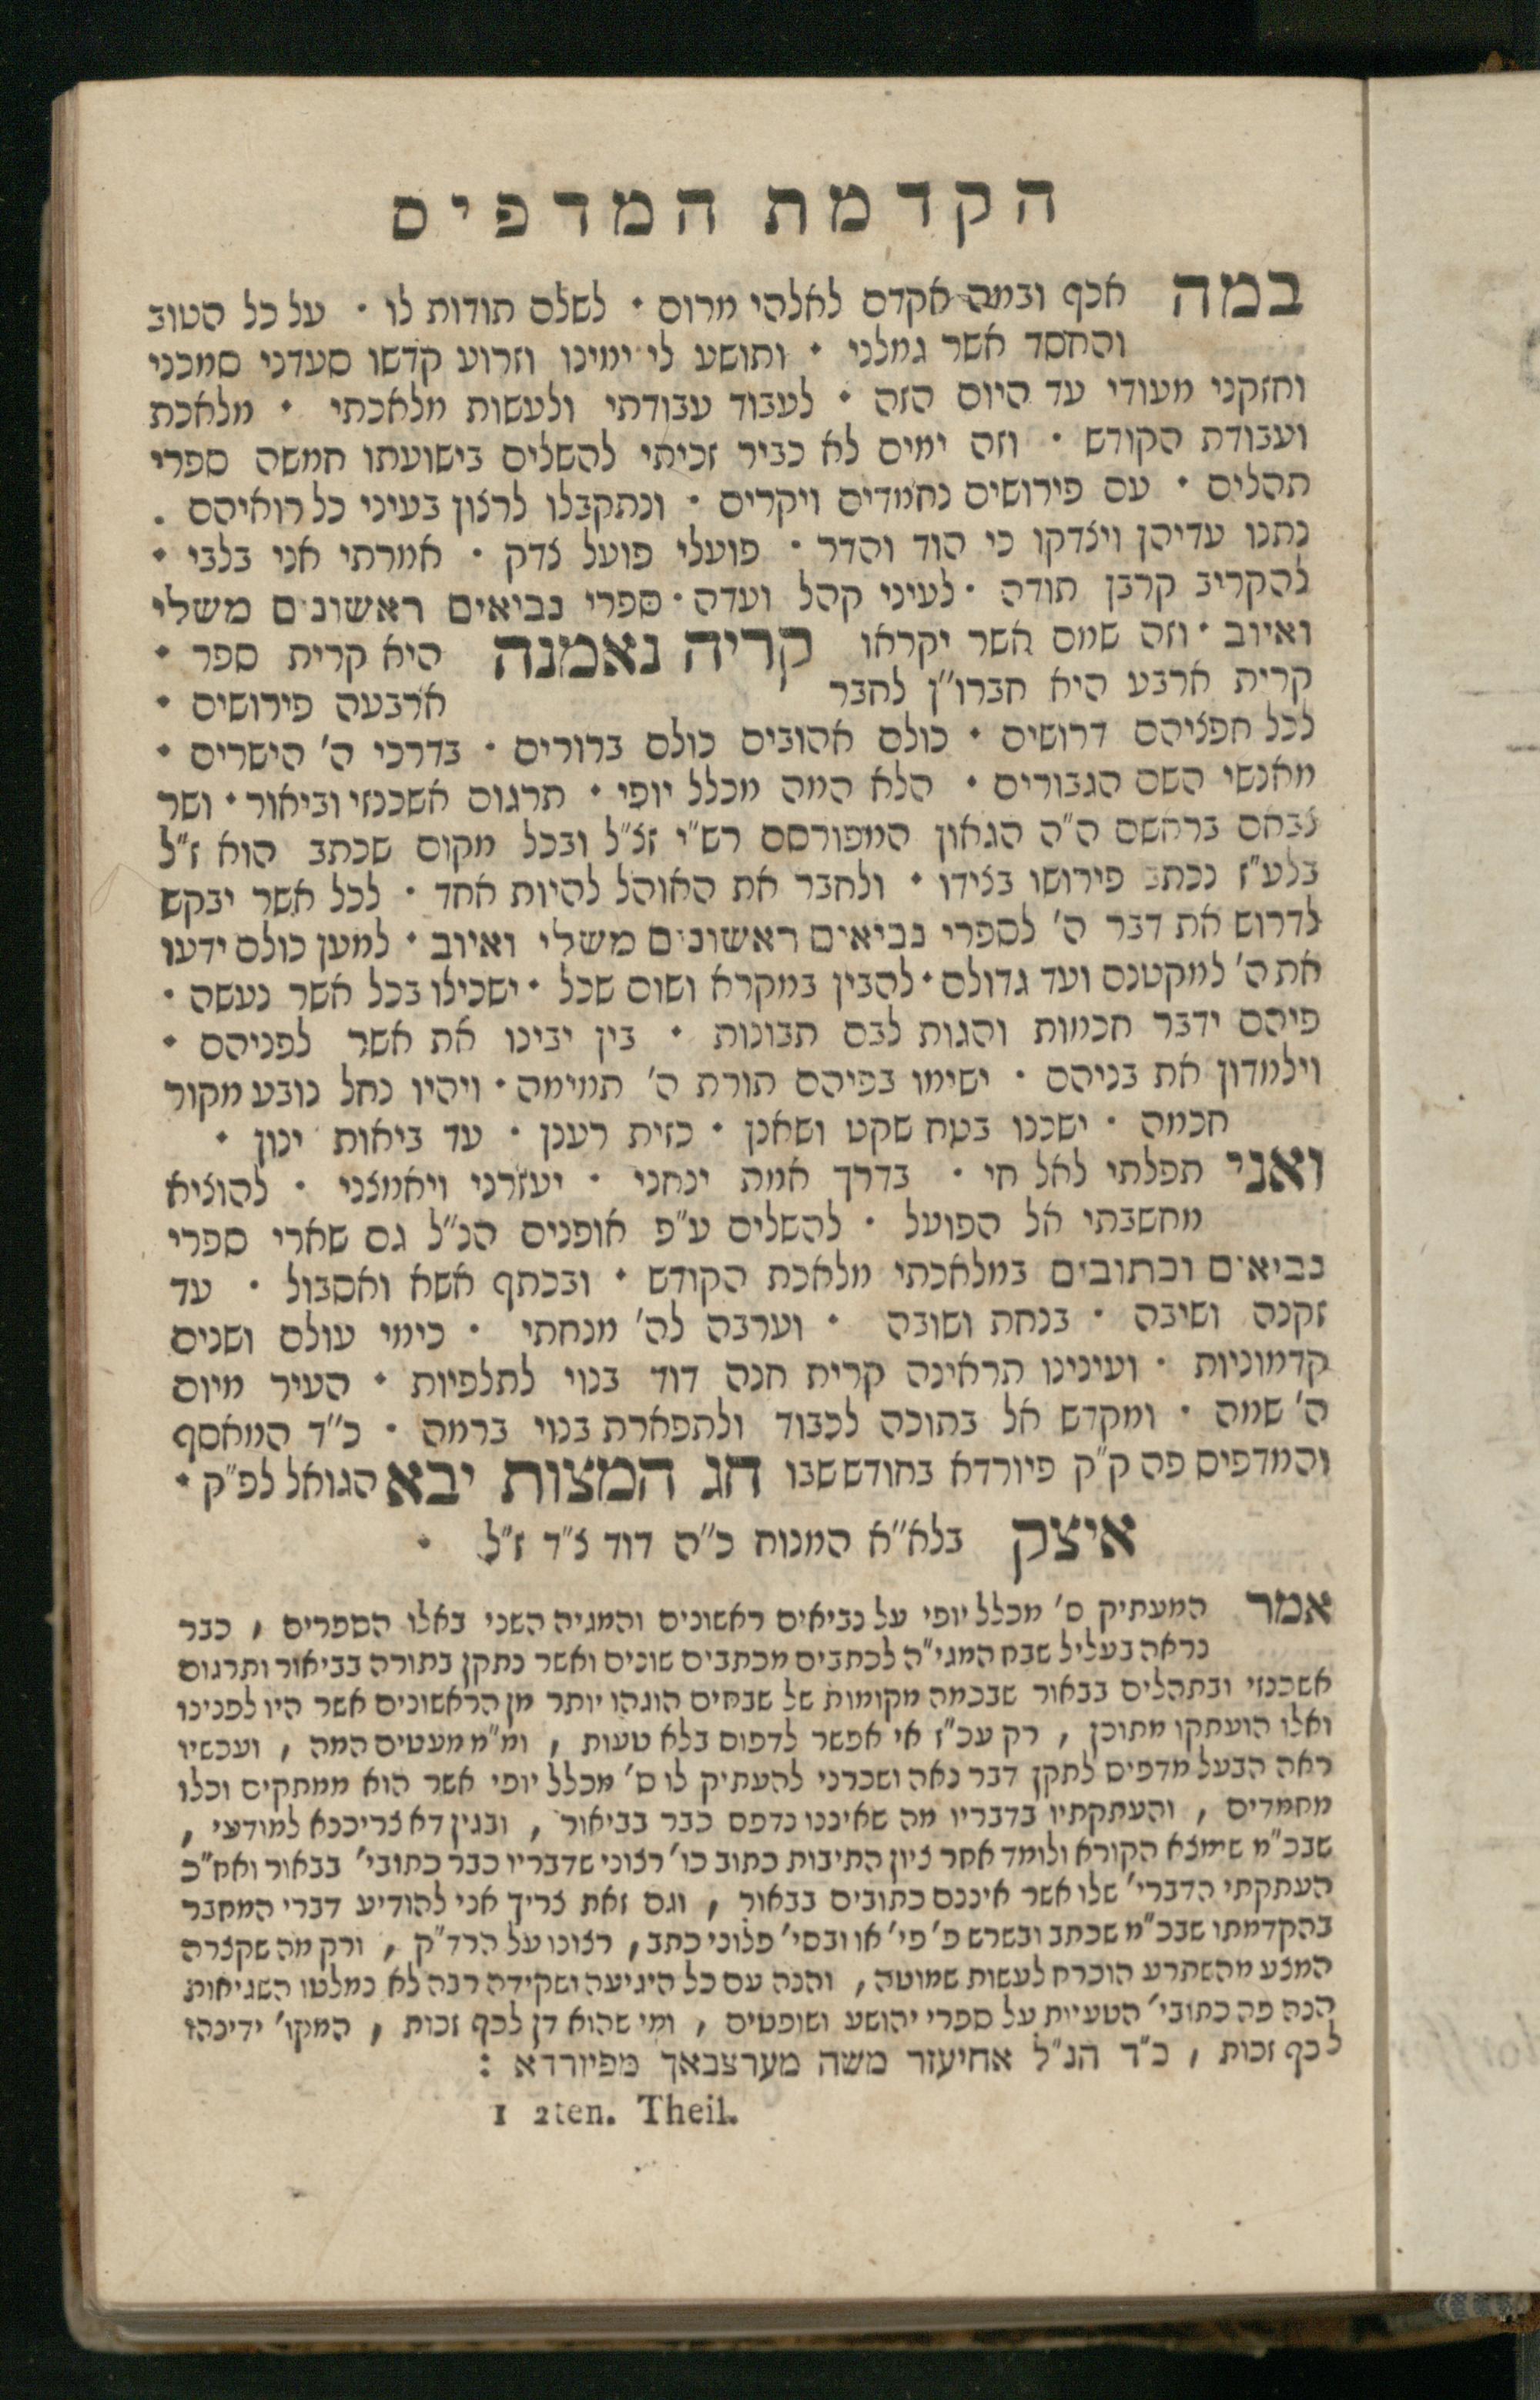 הקדמת המדפיס
במה אכף ובמה אקדם לאלהי מרום • לשלם תודות לו • על כל הטוב
והחסד אשר גמלני • ותושע לי ימינו וזרוע קדשו סעדני סמכני
וחזקני מעודי עד היום הזה • לעבוד עבודתי ולעשות מלאכתי • מלאכת
ועבודת הקודש • וזה ימים לא כביר זכיתי להשלים בישועתו חמשה ספרי
תהלים • עם פירושים נחמדים ויקרים • ונתקבלו לרצון בעיני כל רואיהם .
נתנו עדיהן ויצדקו כי הוד והדר • פועלי פועל צדק • אמרתי אני בלבי •
להקריב קרבן תודה • לעיני קהל ועדה • ספרי נביאים ראשונים משלי
ואיוב • וזה שמם אשר יקראו קריה נאמנה היא קרית ספר •
קרית ארבע היא חברו"ן לחבר ארבעה פירושים •
לכל חפציהם דרושים • כולם אהובים כולם ברורים • בדרכי ה' הישרים •
מאנשי השם הגבורים • הלא המה מכלל יופי • תרגום אשכנזי וביאור • ושר
צבאם בראשם ה"ה הגאון המפורסם רש"י זצ"ל ובכל מקום שכתב הוא ז"ל
בלע"ז נכתב פירושו בצידו • ולחבר את האוהל להיות אחד • לכל אשר יבקש
לדרוש את דבר ה' לספרי נביאים ראשונים משלי ואיוב • למען כולם ידעו
את ה' למקטנם ועד גדולם • להבין במקרא ושום שכל • ישכילו בכל אשר נעשה •
פיהם ידבר חכמות והגות לבם תבונות • בין יבינו את אשר לפניהם •
וילמדון את בניהם • ישימו בפיהם תורת ה' תמימה • ויהיו נחל נובע מקור
חכמה • ישכנו בטח שקט ושאנן • כזית רענן • עד ביאות ינון •
ואני תפלתי לאל חי • בדרך אמת ינחני • יעזרני ויאמצני • להוציא
מחשבתי אל הפועל • להשלים ע"פ אופנים הנ"ל גם שארי ספרי
נביאים וכתובים במלאכתי מלאכת הקודש • ובכתף אשא ואסבול • עד
זקנה ושיבה • בנחת ושובה • וערבה לה' מנחתי • כימי עולם ושנים
קדמוניות • ועינינו תראינה קרית חנה דוד בנוי לתלפיות • העיר מיום
ה' שמה • ומקדש אל בתוכה לכבוד ולתפארת בנוי ברמה • כ"ד המאסף
והמדפיס פה ק"ק פיורדא בחודש שבו חג המצות יבא הגואל לפ"ק •
איצק בלא"א המנוח כ"ה דוד צ"ד ז"ל •
אמר המעתיק ס' מכלל יופי על נביאים ראשונים והמגיה השני באלו הספרים , כבר
נראה בעליל שבח המגי"ה לכתבים מכתבים שונים ואשר נתקן בתורה בביאור ותרגום
אשכנזי ובתהלים בבאור שבכמה מקומות של שבחים הוגהו יותר מן הראשונים אשר היו לפנינו
ואלו הועתקו מתוכן , רק עכ"ז אי אפשר לדפוס בלא טעות , ומ"מ מעטים המה , ועכשיו
ראה הבעל מדפיס לתקן דבר נאה ושכרני להעתיק לו ס' מכלל יופי אשר הוא ממתקים וכלו
מחמדים , והעתקתיו בדבריו מה שאיננו נדפס כבר בביאור , ובגין דא צריכנא למודעי ,
שבכ"מ שימצא הקורא ולומד אחר ציון התיבות כתוב כו' רצוני שדבריו כבר כתובי' בבאור ואח"כ
העתקתי הדברי' שלו אשר אינכם כתובים בבאור , וגם זאת צריך אני להודיע דברי המחבר
בהקדמתו שבכ"מ שכתב ובשרש פ' פי' או ובסי' פלוני כתב , רצונו על הרד"ק , ורק מה שקצרה
המצע מהשתרע הוכרח לעשות שמוטה , והנה עם כל היגיעה ושקידה רבה לא נמלטו השגיאות
הנה פה כתובי' הטעיות על ספרי יהושע ושופטים , ומי שהוא דן לכף זכות , המקו' ידינהו
לכף זכות , כ"ד הנ"ל אחיעזר משה מערצבאך מפיורדא :
1 2ten. Theil.